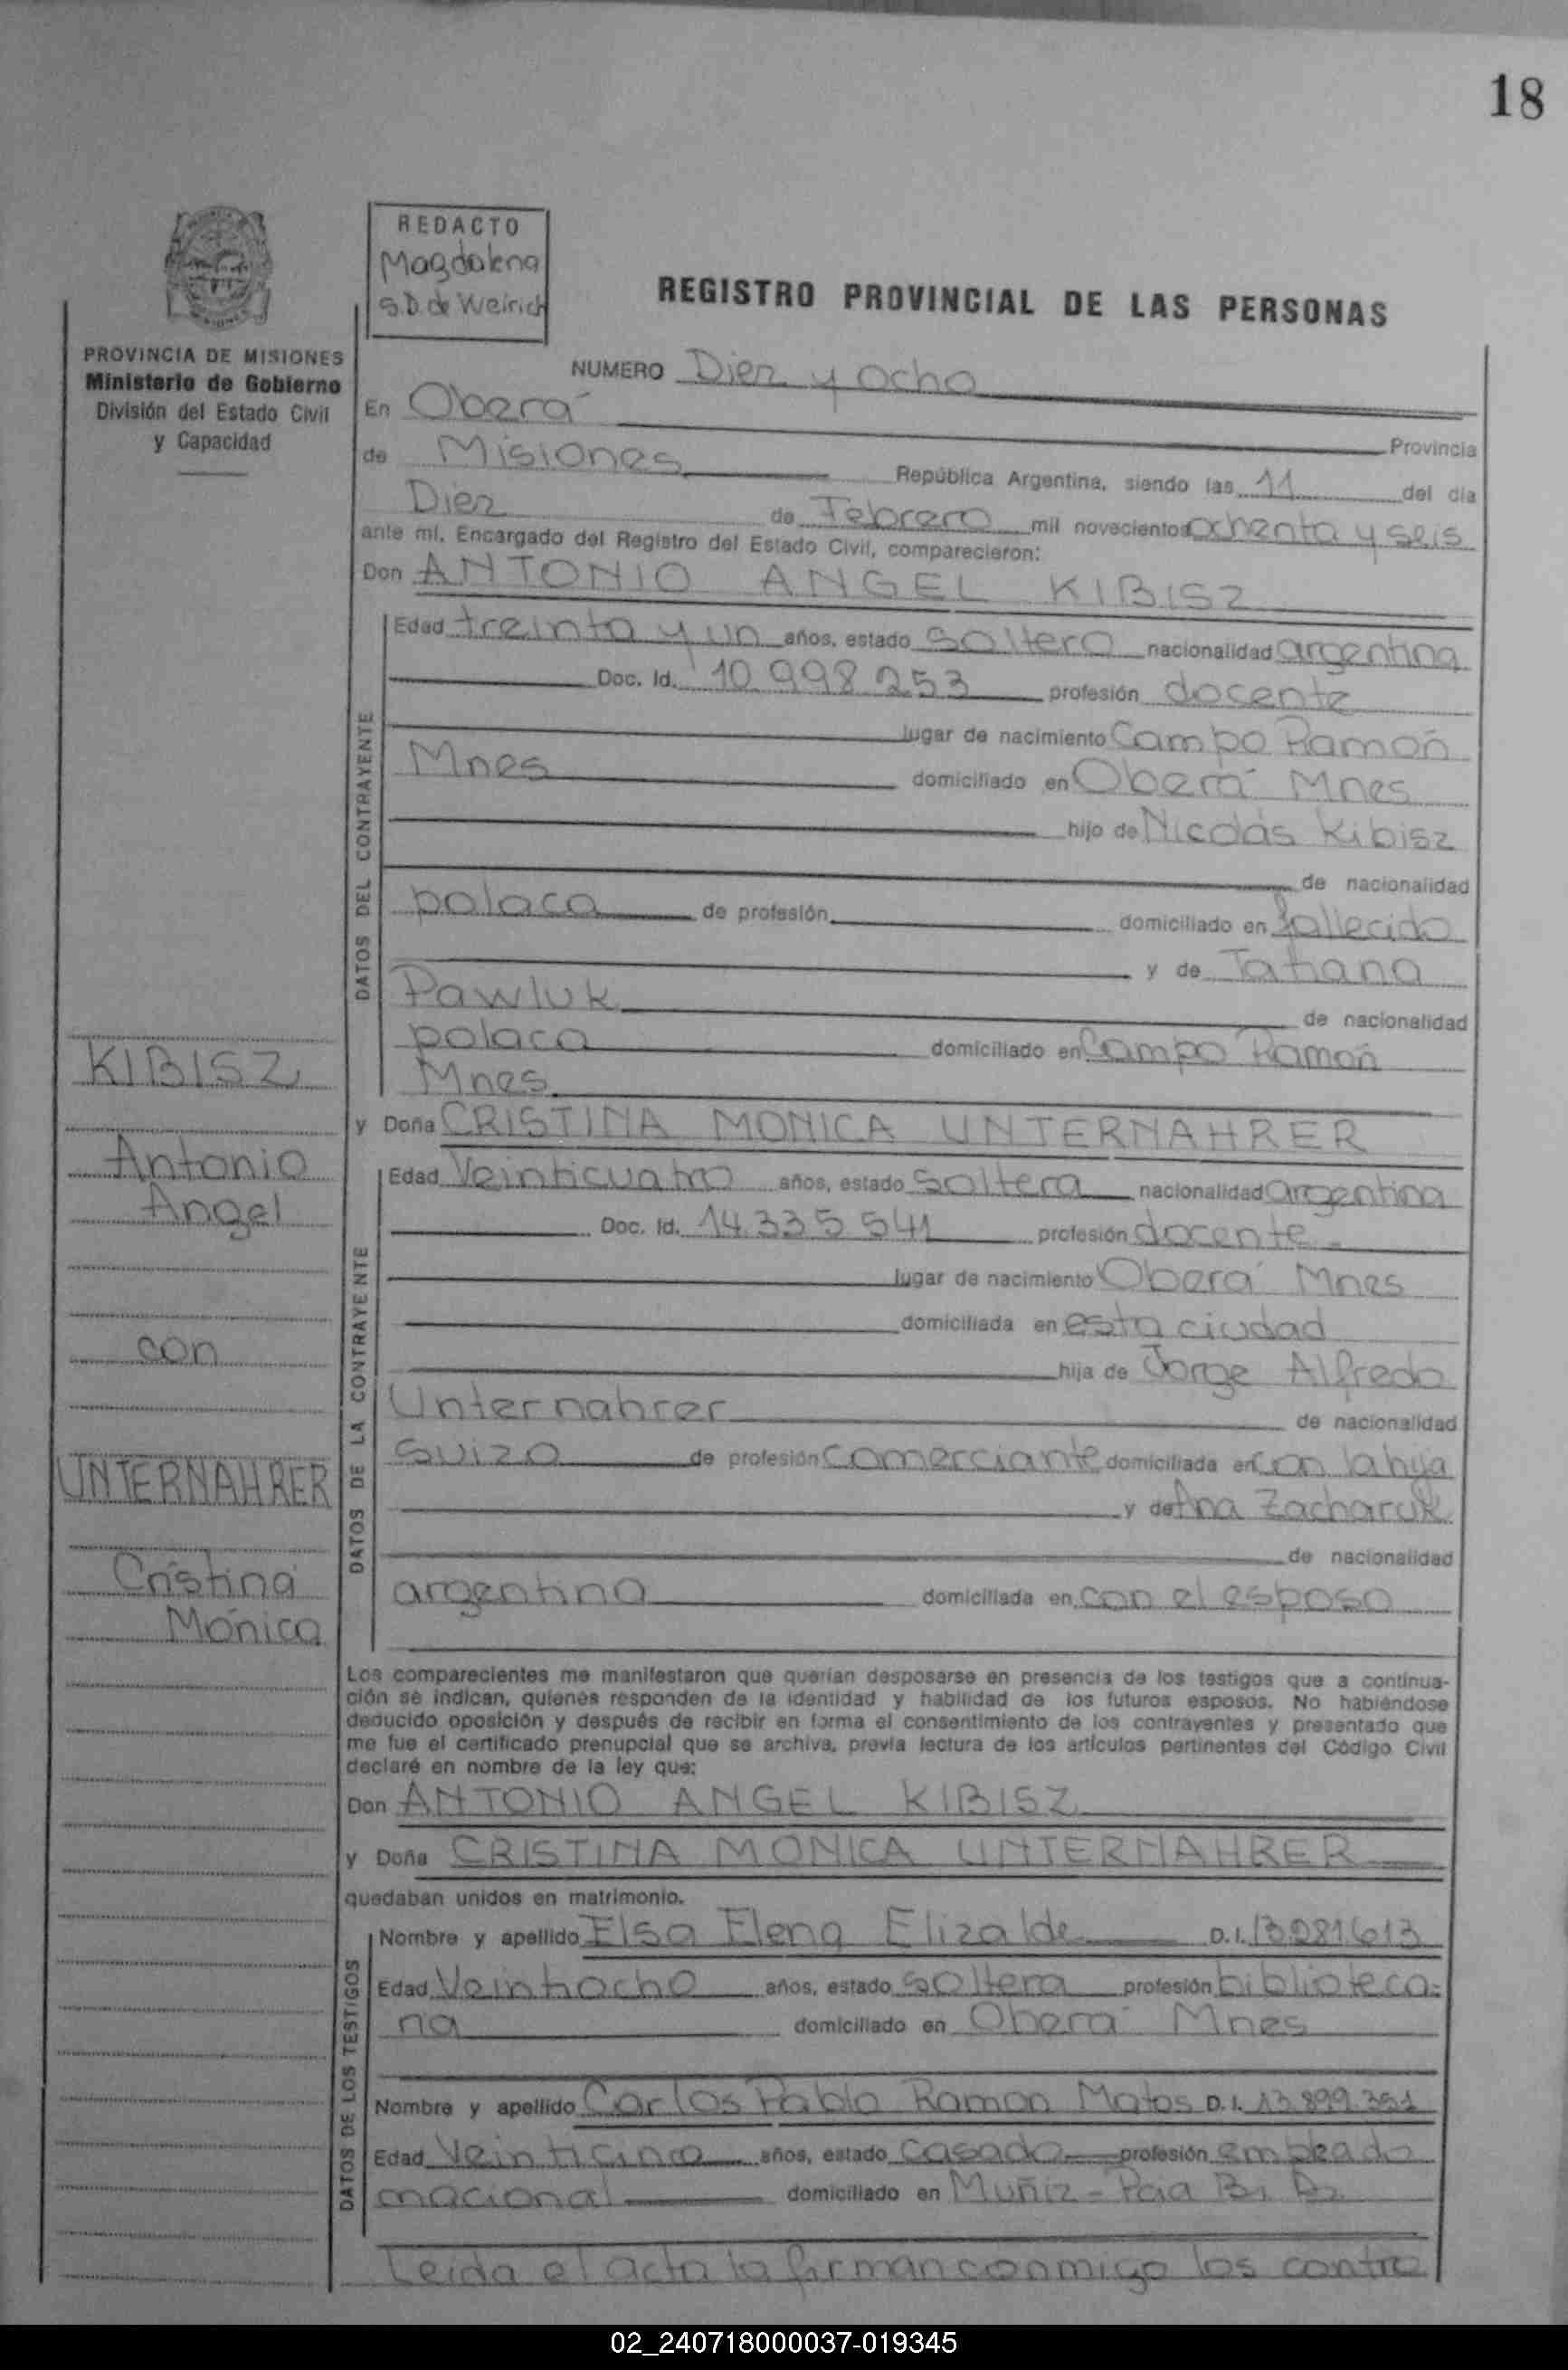 18
REDACTO
Magdalena
S.D. de Weirich
REGISTRO PROVINCIAL DE LAS PERSONAS
PROVINCIA DE MISIONES
Ministerio de Gobierno
División del Estado Civil
y Capacidad
NUMERO Diez y ocho
En Oberá
Provincia
de Misiones República Argentina, siendo las 11 del día
Diez de Febrero mil novecientos ochenta y seis
ante mí, Encargado del Registro del Estado Civil, comparecieron:
Don ANTONIO ANGEL KIBISZ
DATOS DEL CONTRAYENTE
Edad treinta y un años, estado soltero nacionalidad argentina
Doc. Id. 10.998.253 profesión docente
lugar de nacimiento Campo Ramón
Mnes domiciliado en Oberá Mnes
hijo de Nicolás Kibisz
de nacionalidad
polaca de profesión domiciliado en fallecido
y de Tatiana
Pawluk de nacionalidad
polaca domiciliado en Campo Ramón
Mnes
y Doña CRISTINA MONICA UNTERNAHRER
DATOS DE LA CONTRAYENTE
Edad Veinticuatro años, estado soltera nacionalidad argentina
Doc. Id. 14.335 541 profesión docente
lugar de nacimiento Oberá Mnes
domiciliada en esta ciudad
hija de Jorge Alfredo
Unternahrer de nacionalidad
suizo de profesión comerciante domiciliada en con la hija
y de Ana Zacharuk
de nacionalidad
argentina domiciliada en con el esposo
KIBISZ
Antonio
Angel
con
UNTERNAHRER
Cristina
Mónica
Los comparecientes me manifestaron que querían desposarse en presencia de los testigos que a continua-
ción se indican, quienes responden de la identidad y habilidad de los futuros esposos. No habiéndose
deducido oposición y después de recibir en forma el consentimiento de los contrayentes y presentado que
me fue el certificado prenupcial que se archiva, previa lectura de los artículos pertinentes del Código Civil
declaré en nombre de la ley que:
Don ANTONIO ANGEL KIBISZ
y Doña CRISTINA MONICA UNTERNAHRER
quedaban unidos en matrimonio.
DATOS DE LOS TESTIGOS
Nombre y apellido Elsa Elena Elizalde D.I. 13.281.613
Edad Veintiocho años, estado soltera profesión biblioteca-
ria domiciliado en Oberá Mnes
Nombre y apellido Carlos Pablo Ramon Matos D.I. 13.899.351
Edad Veinticinco años, estado casado profesión empleado
nacional domiciliado en Muñiz - Pcia Bs As
Leida el acta la firman conmigo los contra
02_240718000037-019345